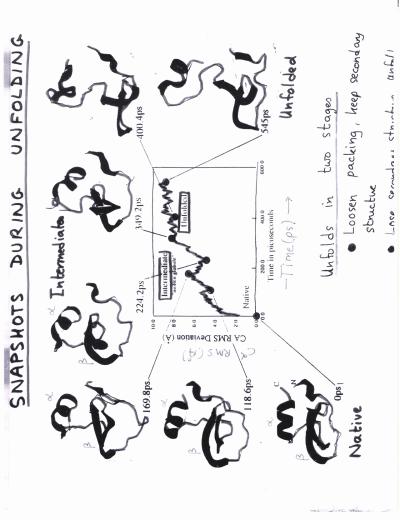 SNAPSHOTS DURING UNFOLDING
Intermediate
Unfolded
Native
α
β
α
β
α
β
α
β
C
N
169.8ps
224.2ps
349.2ps
400.4ps
118.6ps
0ps
545ps
CA RMS Deviation (Å)
10.0
8.0
6.0
4.0
2.0
0.0
0.0
200.0
400.0
600.0
Intermediate
Unfolded
Native
Time in picoseconds
Time (ps) →
Cα RMS (Å)
Unfolds in two stages
• Loosen packing, keep secondary
structure
• Lose secondary structure,